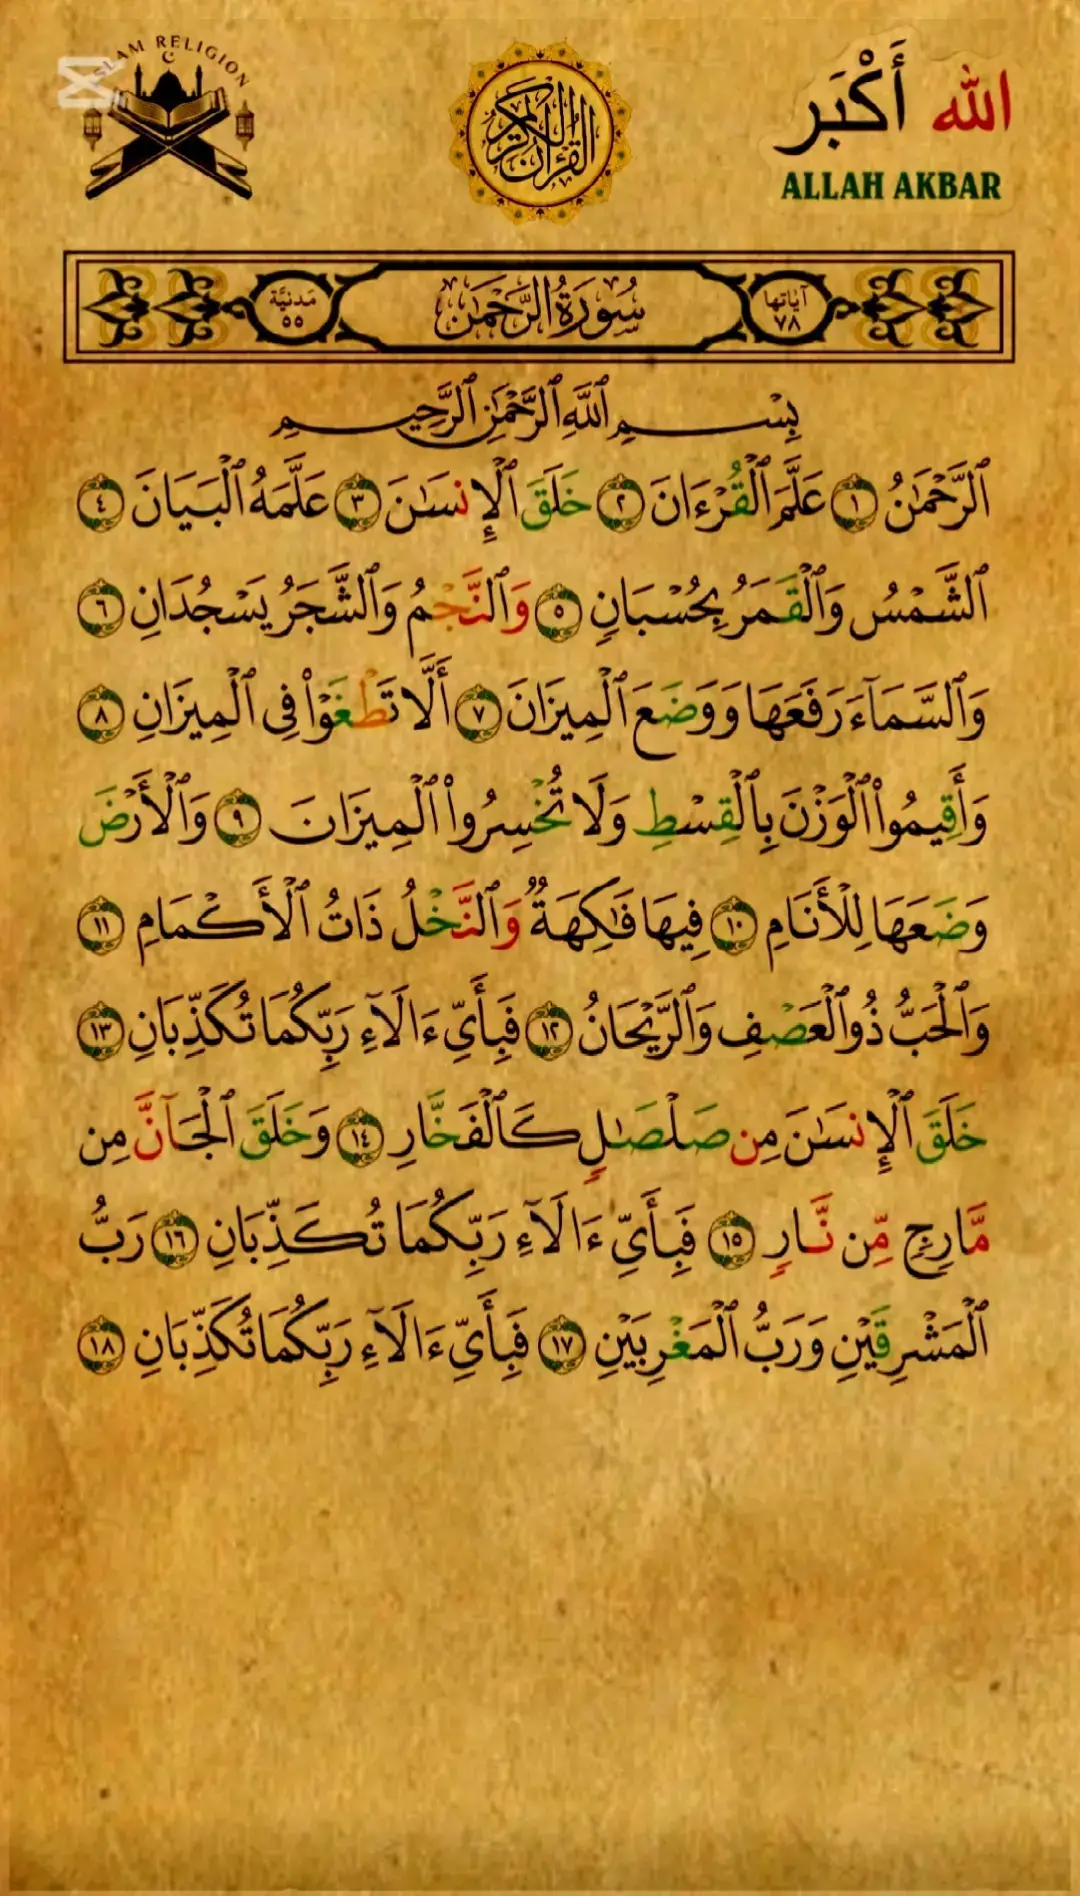 ISLAM RELIGION
القرآن الكريم
الله أَكْبَر
ALLAH AKBAR
آيَاتها ٧٨
سُورَةُ الرَّحْمَٰن
مَدنيَّة ٥٥
بِسْمِ ٱللَّهِ ٱلرَّحْمَٰنِ ٱلرَّحِيمِ
ٱلرَّحْمَٰنُ ١ عَلَّمَ ٱلْقُرْءَانَ ٢ خَلَقَ ٱلْإِنسَٰنَ ٣ عَلَّمَهُ ٱلْبَيَانَ ٤
ٱلشَّمْسُ وَٱلْقَمَرُ بِحُسْبَانٍ ٥ وَٱلنَّجْمُ وَٱلشَّجَرُ يَسْجُدَانِ ٦
وَٱلسَّمَآءَ رَفَعَهَا وَوَضَعَ ٱلْمِيزَانَ ٧ أَلَّا تَطْغَوْا۟ فِى ٱلْمِيزَانِ ٨
وَأَقِيمُوا۟ ٱلْوَزْنَ بِٱلْقِسْطِ وَلَا تُخْسِرُوا۟ ٱلْمِيزَانَ ٩ وَٱلْأَرْضَ
وَضَعَهَا لِلْأَنَامِ ١٠ فِيهَا فَٰكِهَةٌ وَٱلنَّخْلُ ذَاتُ ٱلْأَكْمَامِ ١١
وَٱلْحَبُّ ذُو ٱلْعَصْفِ وَٱلرَّيْحَانُ ١٢ فَبِأَىِّ ءَالَآءِ رَبِّكُمَا تُكَذِّبَانِ ١٣
خَلَقَ ٱلْإِنسَٰنَ مِن صَلْصَٰلٍ كَٱلْفَخَّارِ ١٤ وَخَلَقَ ٱلْجَآنَّ مِن
مَّارِجٍ مِّن نَّارٍ ١٥ فَبِأَىِّ ءَالَآءِ رَبِّكُمَا تُكَذِّبَانِ ١٦ رَبُّ
ٱلْمَشْرِقَيْنِ وَرَبُّ ٱلْمَغْرِبَيْنِ ١٧ فَبِأَىِّ ءَالَآءِ رَبِّكُمَا تُكَذِّبَانِ ١٨